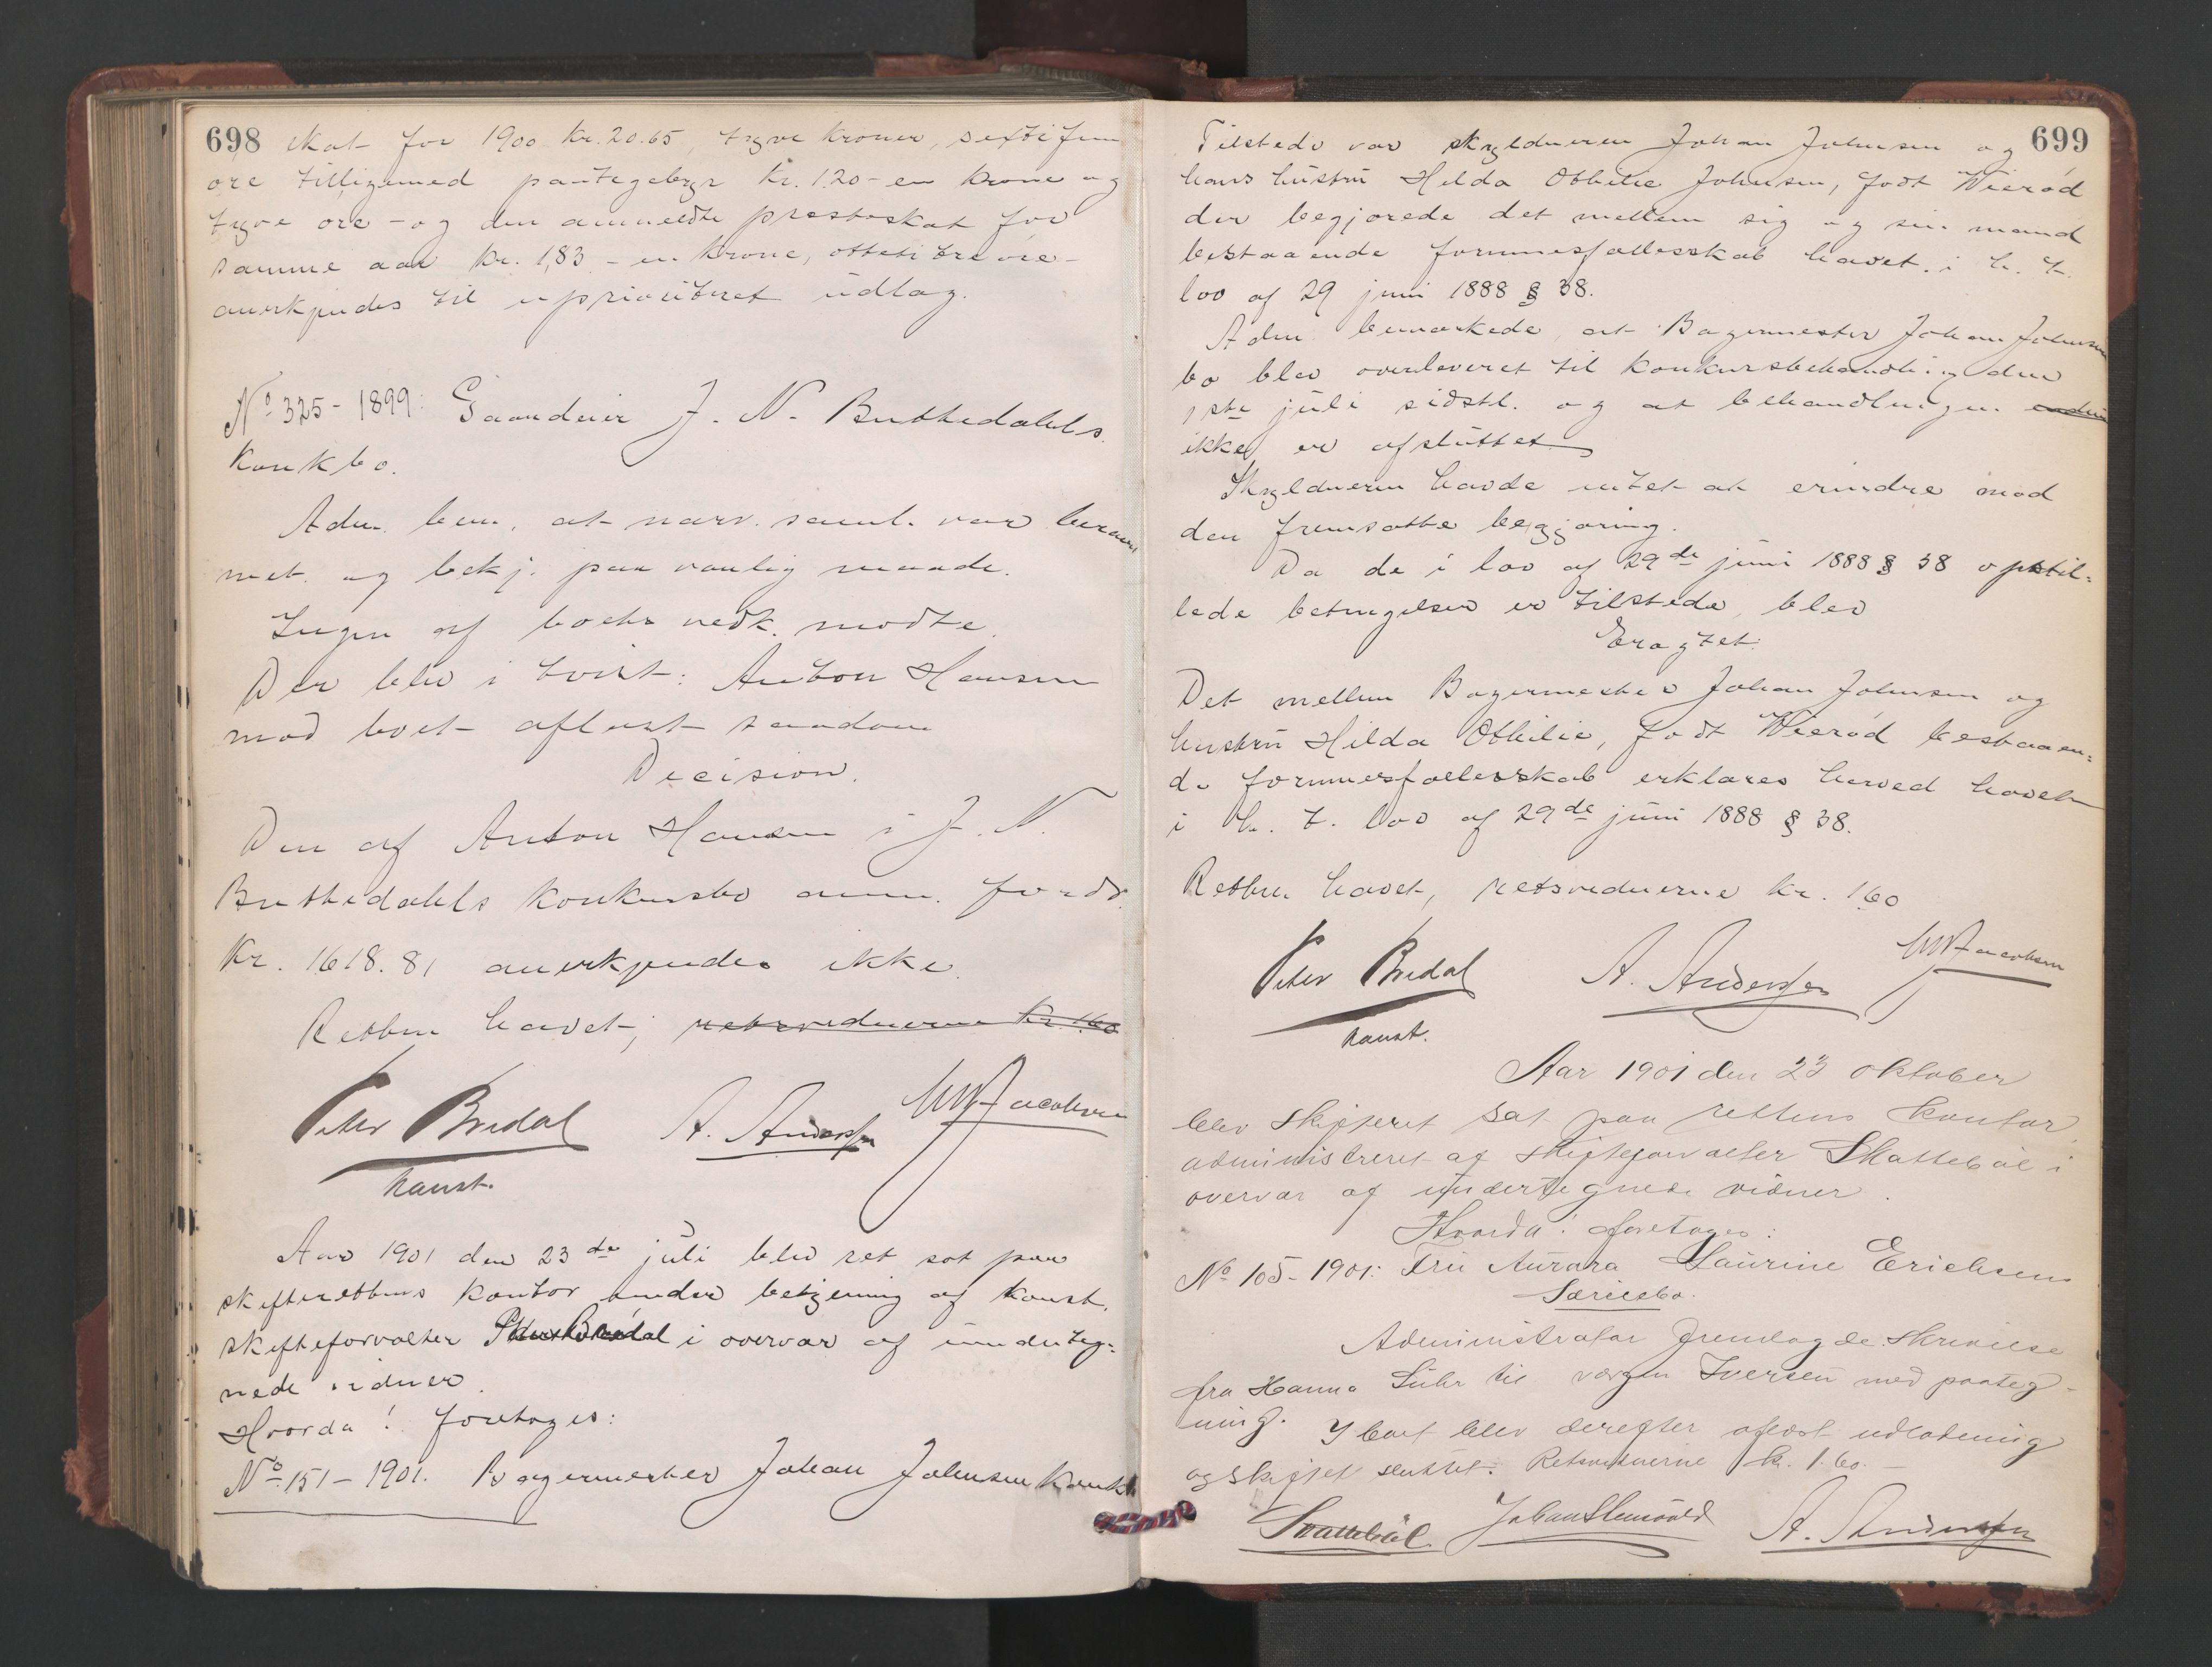 698
skat for 1900 kr. 20.65, tyve kroner, sextifem
øre tilligemed pantegebyr kr. 1.20 - en krone og
tyve øre - og den anmeldte presteskat for
samme aar kr. 1,83 - en krone, ottetitre øre -
anerkjendes til uprioriteret udlæg.
No 325 - 1899: Gaardeier J. N. Buttedahls
konkbo.
Adm. bem. at nærv. saml. var beram
met og bekj. paa vanlig maade.
Ingen af boets vedk. mødte.
Der blev i tvist: Anton Hansen
mod boet aflæst saadan
Decision.
Den af Anton Hansen i J. N.
Buttedahls konkursbo anm. fordr.
kr. 1618.81 anerkjendes ikke.
Retten hævet; retsvidnerne kr. 1.60
Peter Bredal A. Andersen Jacobsen
konst.
Aar 1901 den 23de juli blev ret sat paa
skifterettens kontor under betjening af konst.
skifteforvalter Peter Bredal i overvær af underteg-
nede vidner.
Hvorda! foretages:
No 151 - 1901. Bagermester Johan Johnsen konkb
699
Tilstede var skyldneren Johan Johnsen og
hans hustru Hilda Othilie Johnsen, født Wierød
der begjærede det mellem sig og sin mand
bestaaende formuesfællesskab hævet i h. t.
lov af 29 juni 1888 § 38.
Adm. bemærkede, at Bagermester Johan Johnsen
bo blev overleveret til konkursbehandling den
1ste juli sidstl. og at behandlingen endnu
ikke er afsluttet
Skyldneren havde intet at erindre mod
den fremsatte begjæring.
Da de i lov af 29de juni 1888 § 38 opstil-
lede betingelser er tilstede, blev
Eragtet:
Det mellem Bagermester Johan Johnsen og
hustru Hilda Othilie, født Wierød bestaaen-
de formuesfællesskab erklæres herved hævet
i h. t. lov af 29de juni 1888 § 38.
Retten hævet, retsvidnerne kr. 1.60
Peter Bredal A. Andersen Jacobsen
konst.
Aar 1901 den 23 oktober
blev skifteret sat paa rettens kontor,
administreret af skifteforvalter Skattebøl i
overvær af undertegnede vidner.
Hvorda! foretages:
No 105 - 1901: Fru Aurora Laurine Erichsens
Særiebo.
Administrator fremlagde skrivelse
fra Hanna Luhr til værgen Iversen med paateg-
ning. I boet blev derefter aflæst udlodning
og skiftet sluttet. Retsvidnerne kr. 1.60. -
Skattebøl. A. Andersen